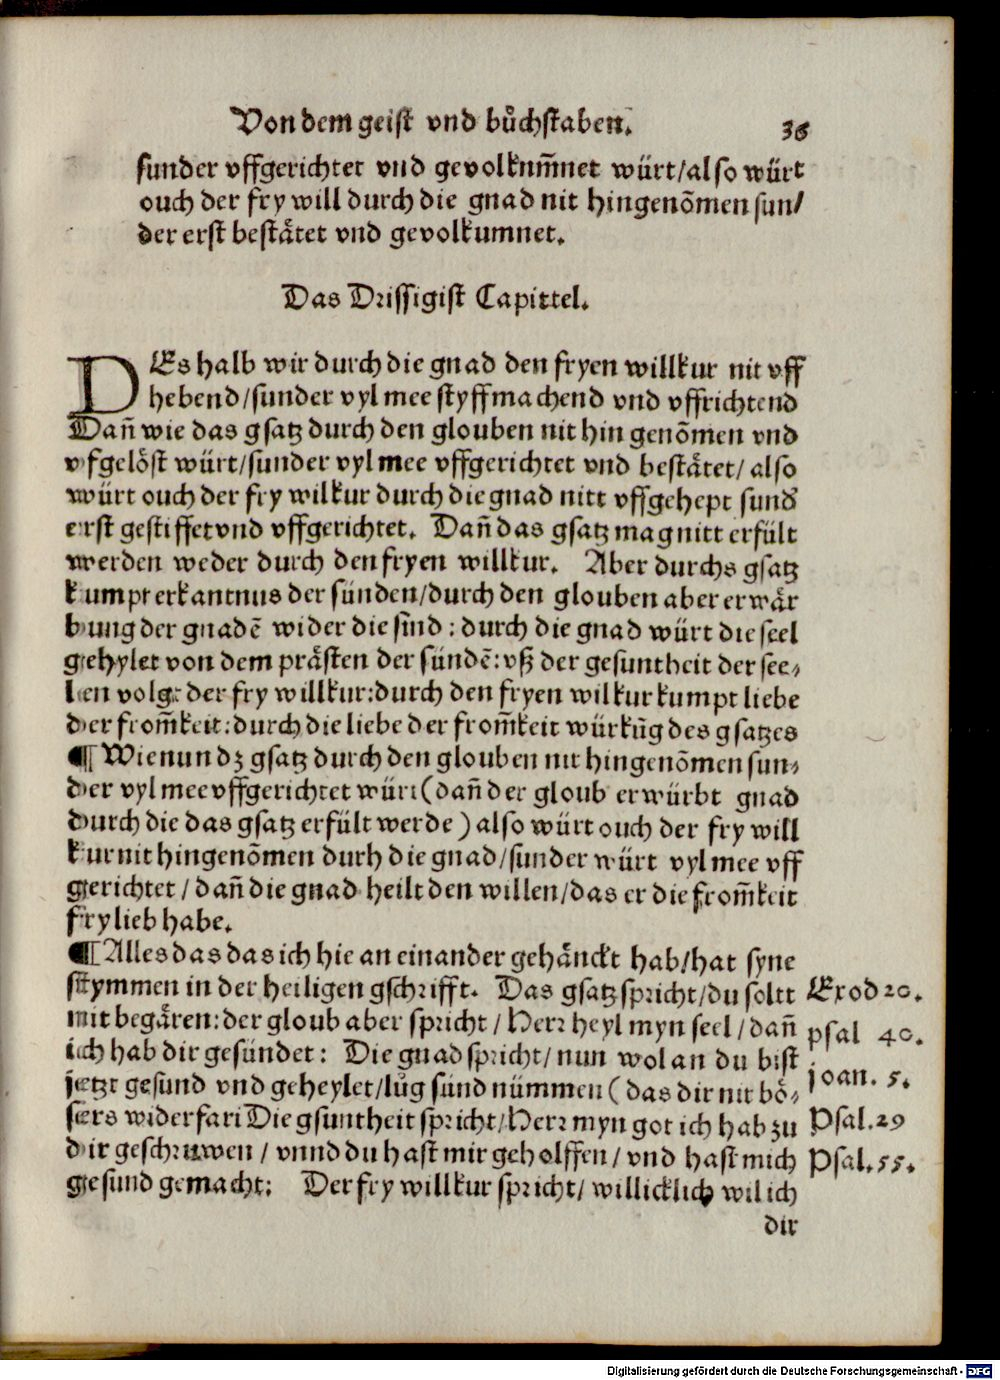 Von dem geist vnd bůchstaben. 36
sunder vffgerichtet vnd gevolknm̃net würt/also würt
ouch der fry will durch die gnad nit hingenõmen sun/
der erst beståtet vnd gevolkumnet.
Das Drissigist Capittel.
DEs halb wir durch die gnad den fryen willkur nit vff
hebend/sunder vyl mee styff machend vnd vffrichtend
Dañ wie das gsatz durch den glouben nit hin genõmen vnd
vfgelöst würt/sunder vyl mee vffgerichtet vnd beståtet/ also
würt ouch der fry wilkur durch die gnad nitt vffgehept sund᷑
erst gestiffet vnd vffgerichtet. Dañ das gsatz mag nitt erfült
werden weder durch den fryen willkur. Aber durchs gsatz
kumpt erkantnus der sünden/durch den glouben aber erwår
bung der gnadẽ wider die sünd: durch die gnad würt die seel
gehylet von dem pråsten der sündẽ: vß der gesuntheit der see⸗
len volgt der fry willkur: durch den fryen wilkur kumpt liebe
der from̃keit: durch die liebe der from̃keit würkũg des gsatzes
¶ Wie nun dz gsatz durch den glouben nit hingenõmen sun⸗
der vyl mee vffgerichtet würt (dañ der gloub erwürbt gnad
durch die das gsatz erfült werde) also würt ouch der fry will
kur nit hingenõmen durh die gnad/sunder würt vyl mee vff
gerichtet/ dañ die gnad heilt den willen/das er die from̃keit
fry lieb habe.
¶ Alles das das ich hie an einander gehånckt hab/hat syne
stymmen in der heiligen gschrifft. Das gsatz spricht/du soltt Exod 20.
nit begåren: der gloub aber spricht/ Herr heyl myn seel/ dañ psal 40.
ich hab dir gesündet: Die gnad spricht/ nun wol an du bist
jetzt gesund vnd geheylet/lůg sünd nümmen (das dir nit bö⸗ joan. 5.
sers widerfari Die gsuntheit spricht/Herr myn got ich hab zu Psal. 29
dir geschruwen/ vnnd du hast mir geholffen/ vnd hast mich Psal. 55.
gesund gemacht: Der fry willkur spricht/ willicklich wil ich
dir
Digitalisierung gefördert durch die Deutsche Forschungsgemeinschaft - DFG